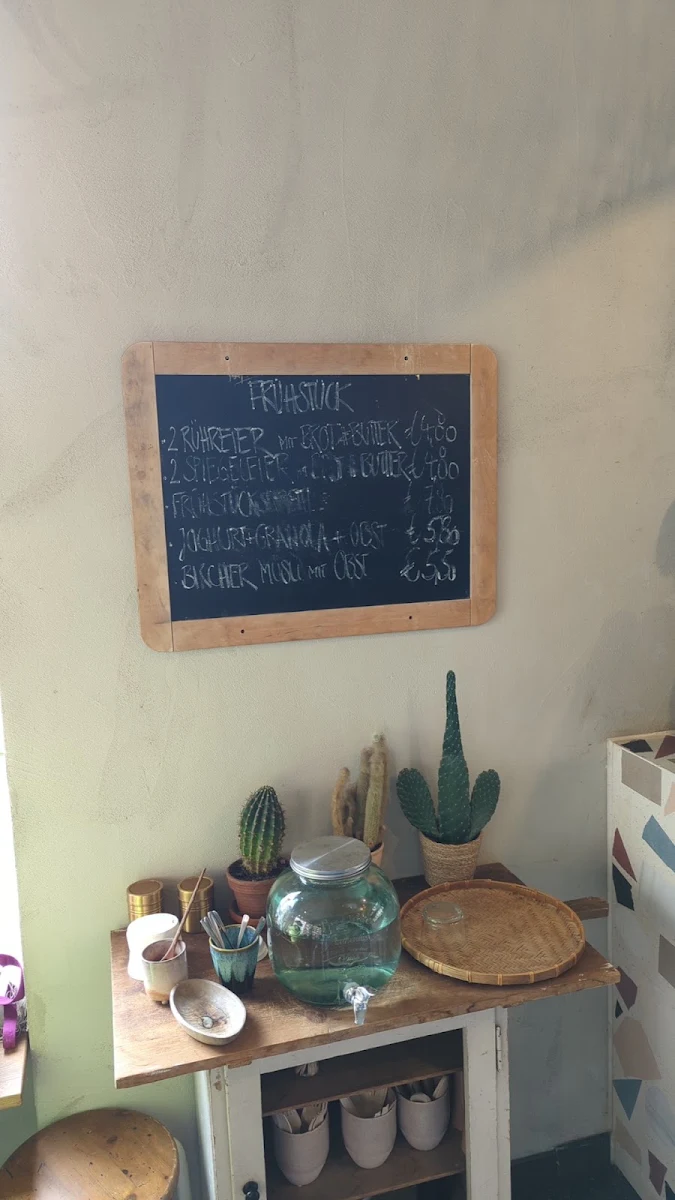 FRÜHSTÜCK
· 2 RÜHREIER MIT BROT & BUTTER €4,00
· 2 SPIEGELEIER BROT & BUTTER €4,00
· FRÜHSTÜCKS € 7,80
· JOGHURT + GRANOLA + OBST € 5,80
· BIRCHER MÜSLI MIT OBST € 5,50